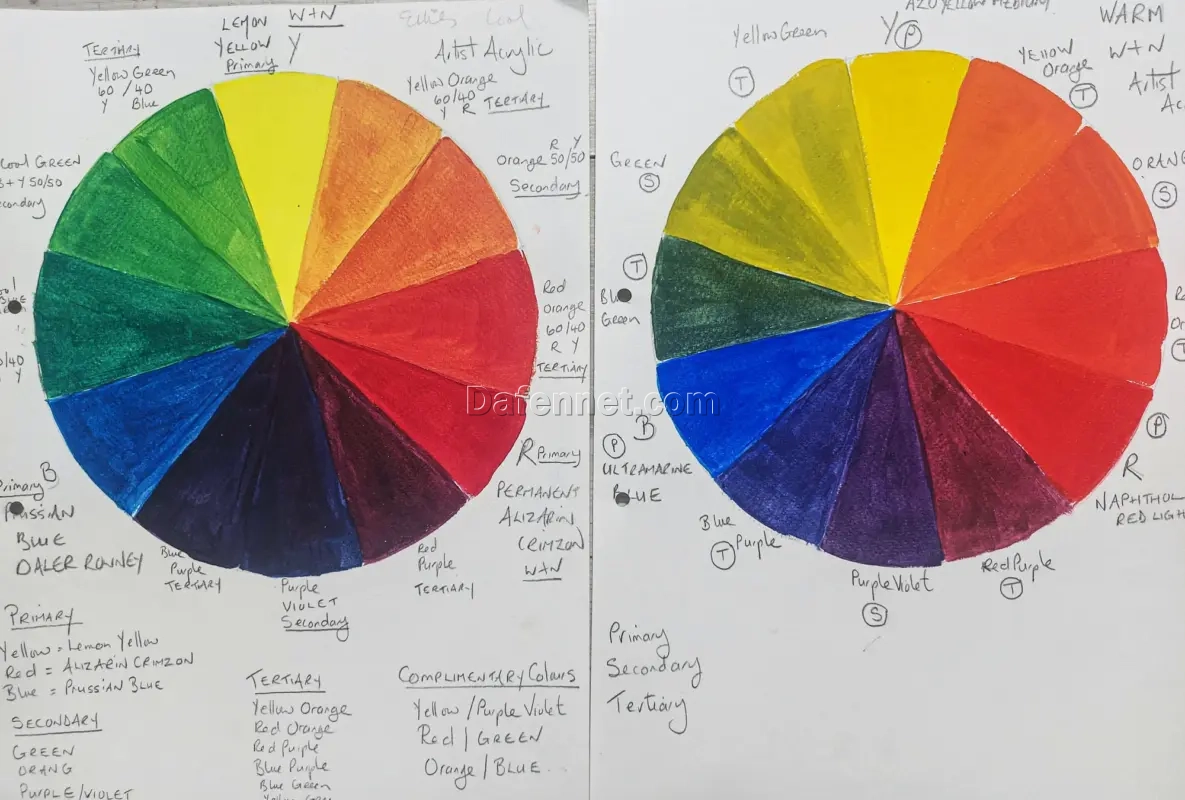 LEMON
YELLOW
Primary
W+N
Y
Artist Acrylic
TERTIARY
Yellow Green
60 / 40
Y Blue
Yellow Orange
60/40
Y R TERTIARY
R Y
Orange 50/50
Secondary
Cool GREEN
B + Y 50/50
Secondary
Red
Orange
60/40
R Y
TERTIARY
R Primary
PERMANENT
ALIZARIN
CRIMZON
W+N
Red
Purple
TERTIARY
Purple
VIOLET
Secondary
Blue
Purple
TERTIARY
B
Primary
PRUSSIAN
BLUE
DALER ROWNEY
PRIMARY
Yellow = Lemon Yellow
Red = ALIZARIN CRIMZON
Blue = PRUSSIAN BLUE
SECONDARY
GREEN
ORANG
PURPLE/VIOLET
TERTIARY
Yellow Orange
Red Orange
Red Purple
Blue Purple
Blue Green
COMPLIMENTARY Colours
Yellow / Purple Violet
Red / GREEN
Orange / BLUE
Dafennet.com
AZO YELLOW MEDIUM
Y P
WARM
W+N
Artist
Yellow Green
T
YELLOW
Orange
T
GREEN
S
S
T
Blue
Green
P
B
ULTRAMARINE
BLUE
T
P
R
NAPHTHOL
RED LIGH
Blue
Purple
T
Purple Violet
S
Red Purple
T
Primary
Secondary
Tertiary